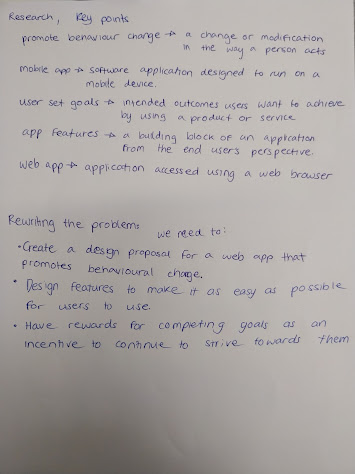 Research, Key points
promote behaviour change → a change or modification
in the way a person acts
mobile app → software application designed to run on a
mobile device.
user set goals → intended outcomes users want to achieve
by using a product or service
app features → a building block of an application
from the end users perspective.
web app → application accessed using a web browser
Rewriting the problem: we need to:
• Create a design proposal for a web app that
promotes behavioural change.
• Design features to make it as easy as possible
for users to use.
• Have rewards for competing goals as an
incentive to continue to strive towards them